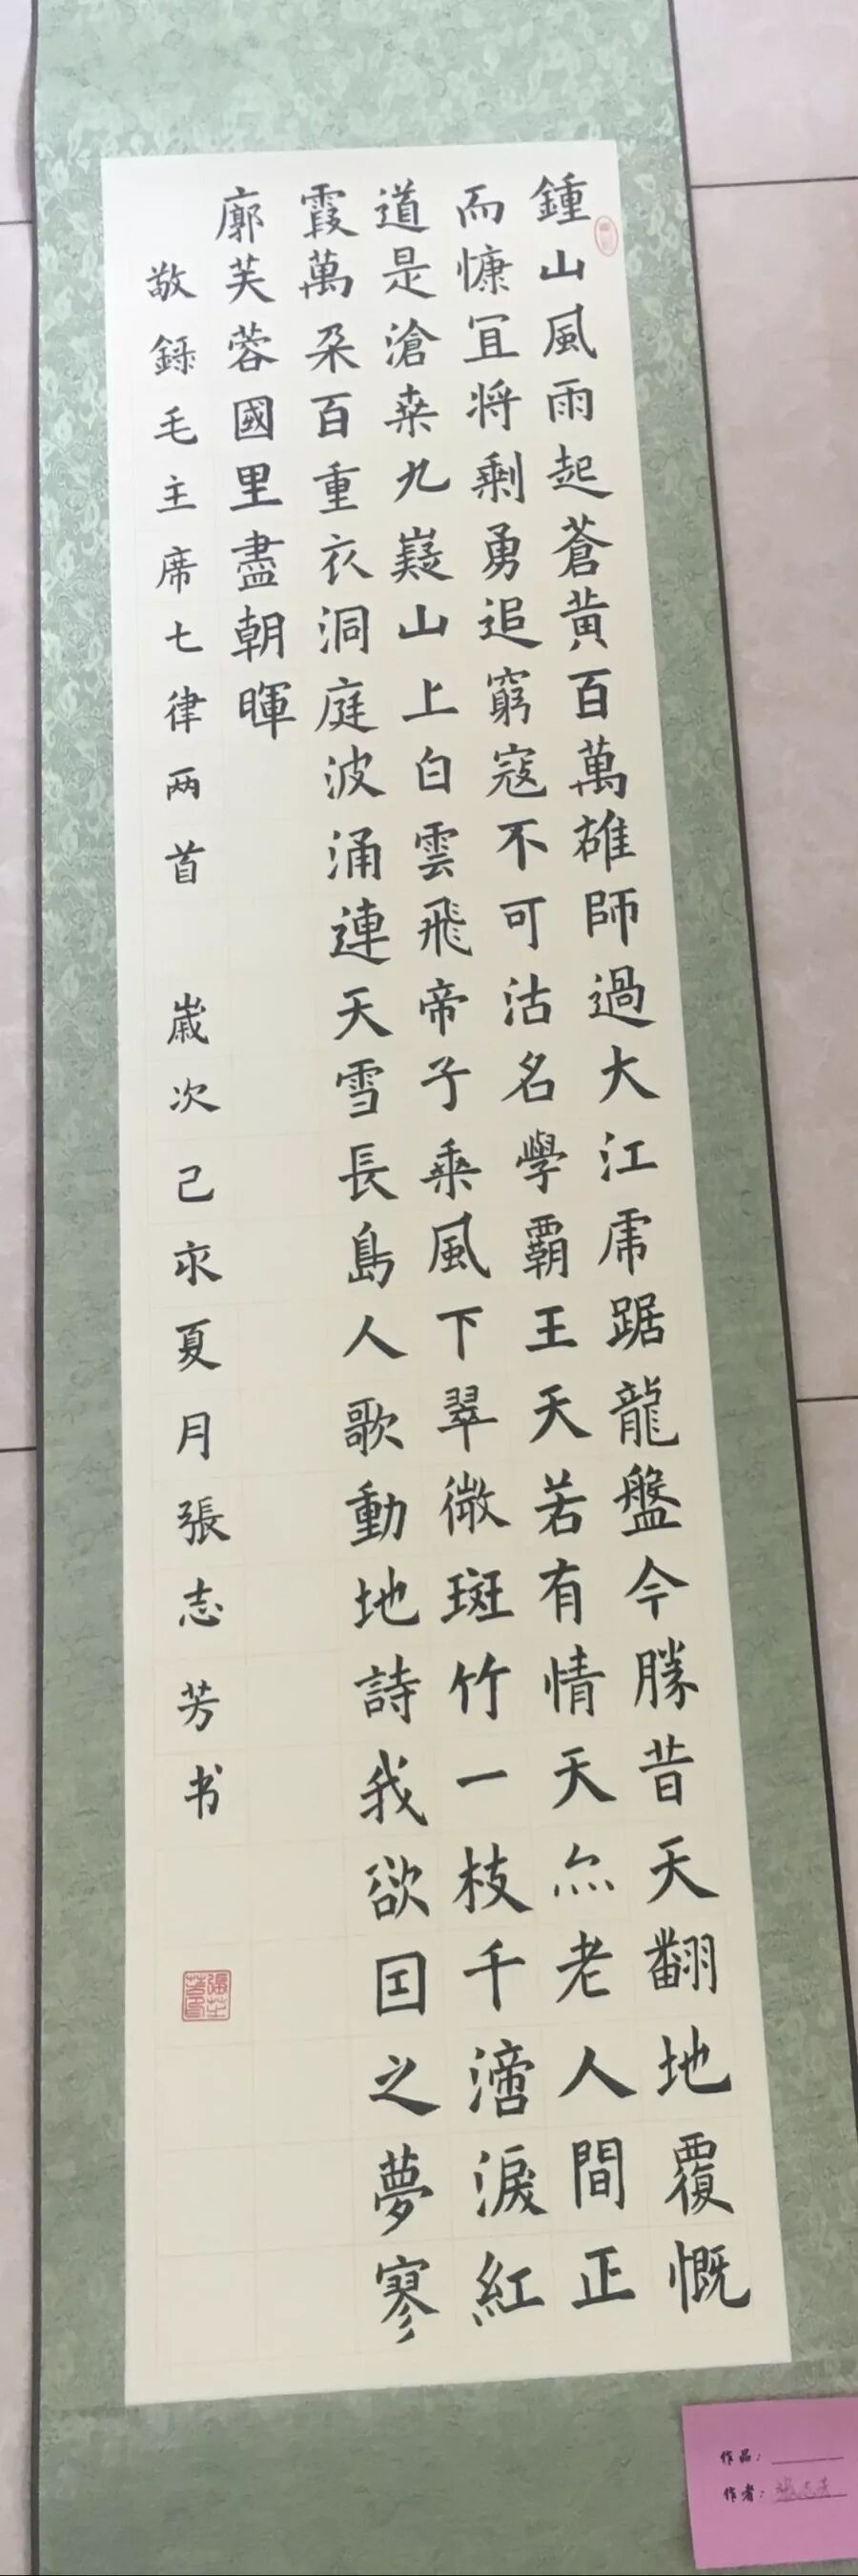 鍾山風雨起蒼黄百萬雄師過大江虎踞龍盤今勝昔天翻地覆慨
而慷冝将剩勇追窮寇不可沽名學霸王天若有情天亦老人間正
道是滄桒九嶷山上白雲飛帝子乘風下翠微斑竹一枝千滴淚紅
霞萬朵百重衣洞庭波涌連天雪長島人歌動地詩我欲因之夢寥
廓芙蓉國里盡朝暉
敬録毛主席七律两首 歲次己未夏月張志芳书
作品：
作者：張志芳